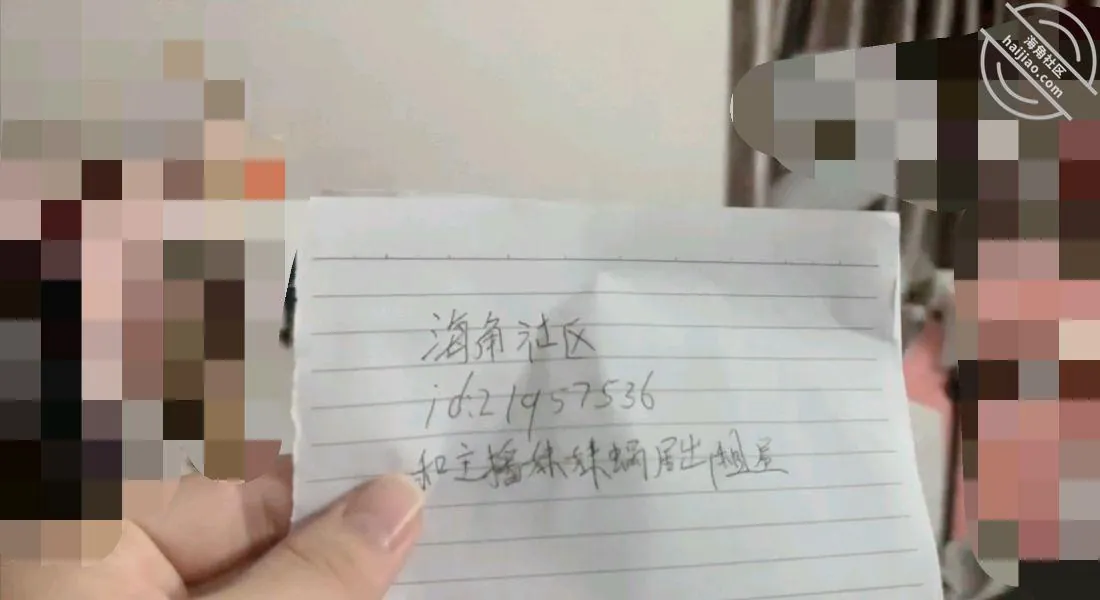 海角社区
haijiao.com
海角社区
id:21957536
和主播妹妹蜗居出租屋